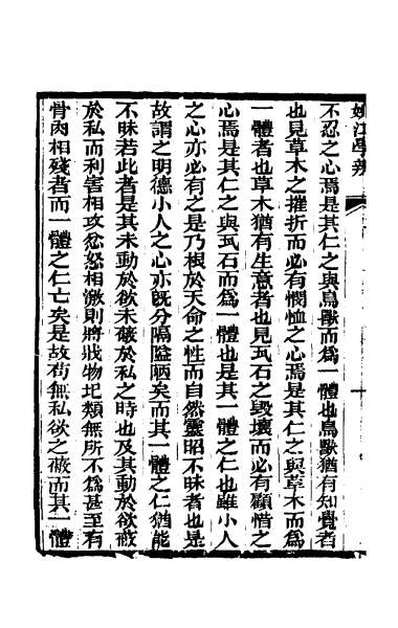 姚江學辨
不忍之心焉是其仁之與鳥獸而爲一體也鳥獸猶有知覺者
也見草木之摧折而必有憫恤之心焉是其仁之與草木而爲
一體者也草木猶有生意者也見瓦石之毀壞而必有顧惜之
心焉是其仁之與瓦石而爲一體也是其一體之仁也雖小人
之心亦必有之是乃根於天命之性而自然靈昭不昧者也是
故謂之明德小人之心亦旣分隔隘陋矣而其一體之仁猶能
不昧若此者是其未動於欲未蔽於私之時也及其動於欲蔽
於私而利害相攻忿怒相激則將戕物圮類無所不爲甚至有
骨肉相殘者而一體之仁亡矣是故苟無私欲之蔽而其一體